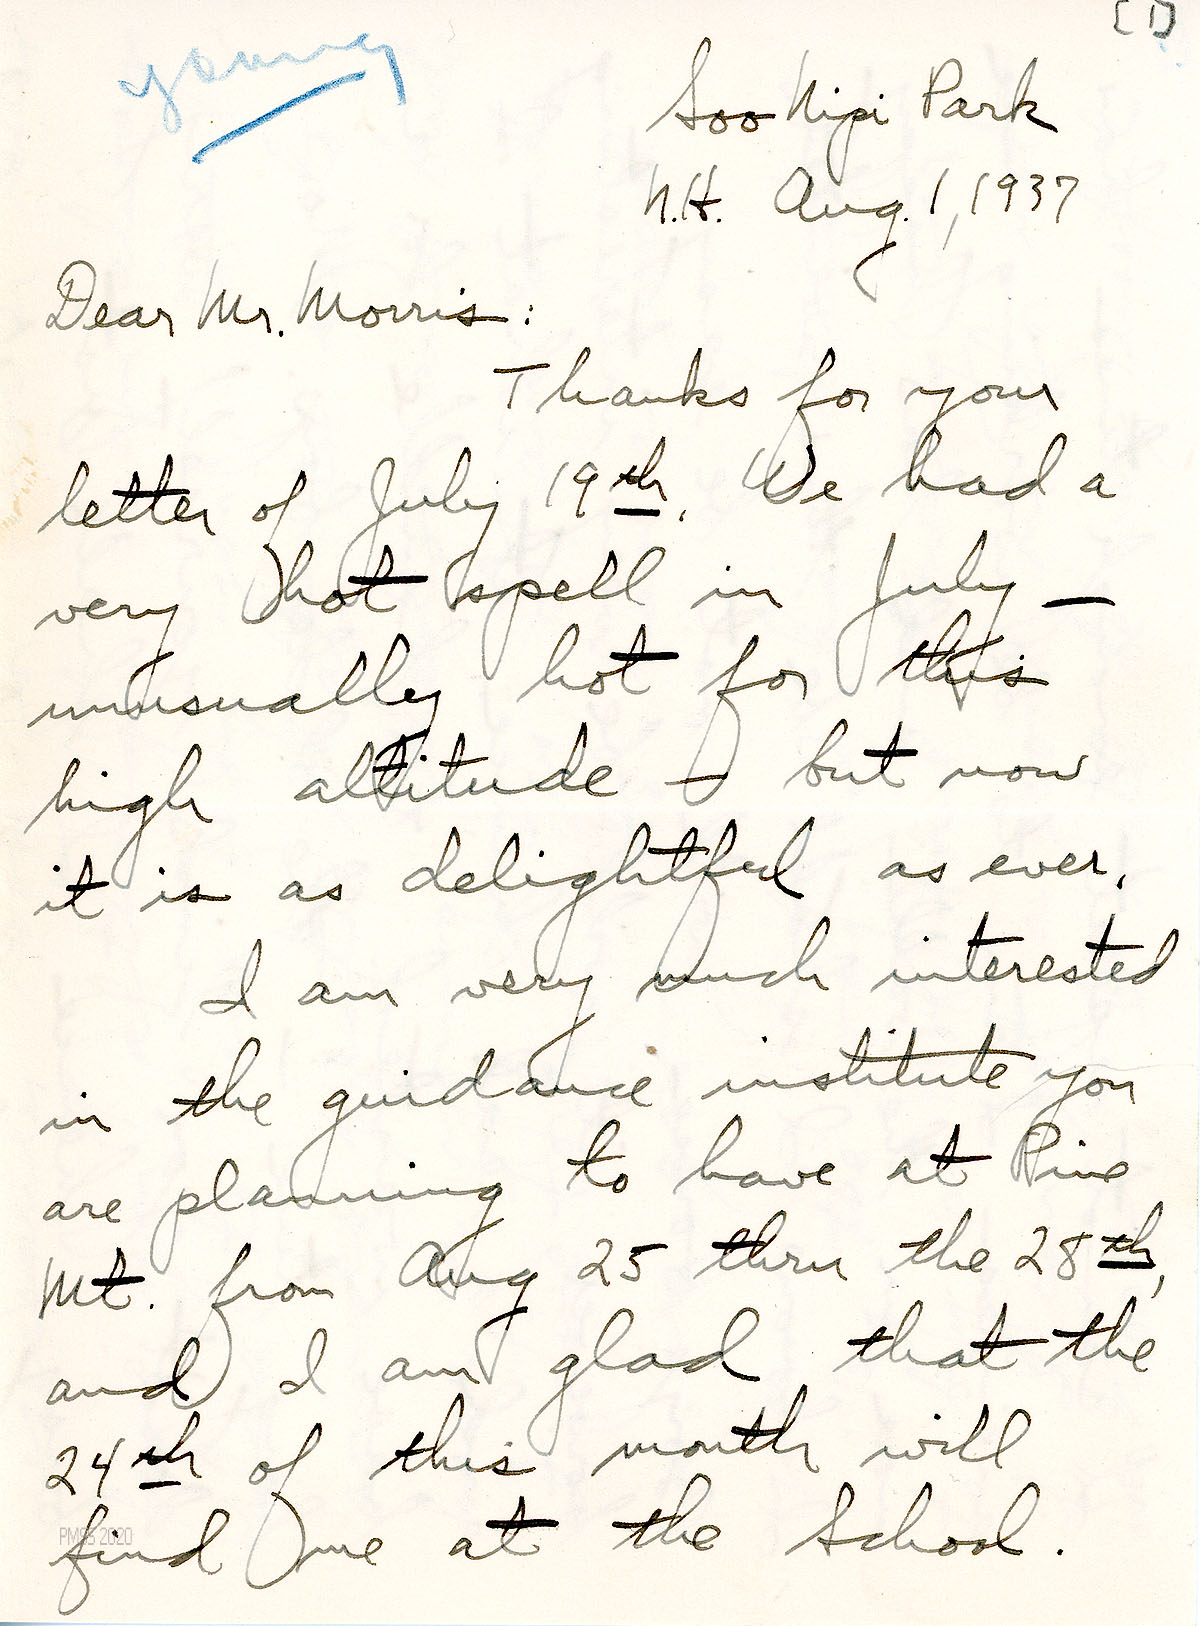 [1]
young
Soo Nipi Park
N.H. Aug. 1, 1937
Dear Mr. Morris:
Thanks for your
letter of July 19th. We had a
very hot spell in July —
unusually hot for this
high altitude — but now
it is as delightful as ever.
I am very much interested
in the guidance institute you
are planning to have at Pine
Mt. from Aug 25 thru the 28th,
and I am glad that the
24th of this month will
find me at the School.
PMSS 2020